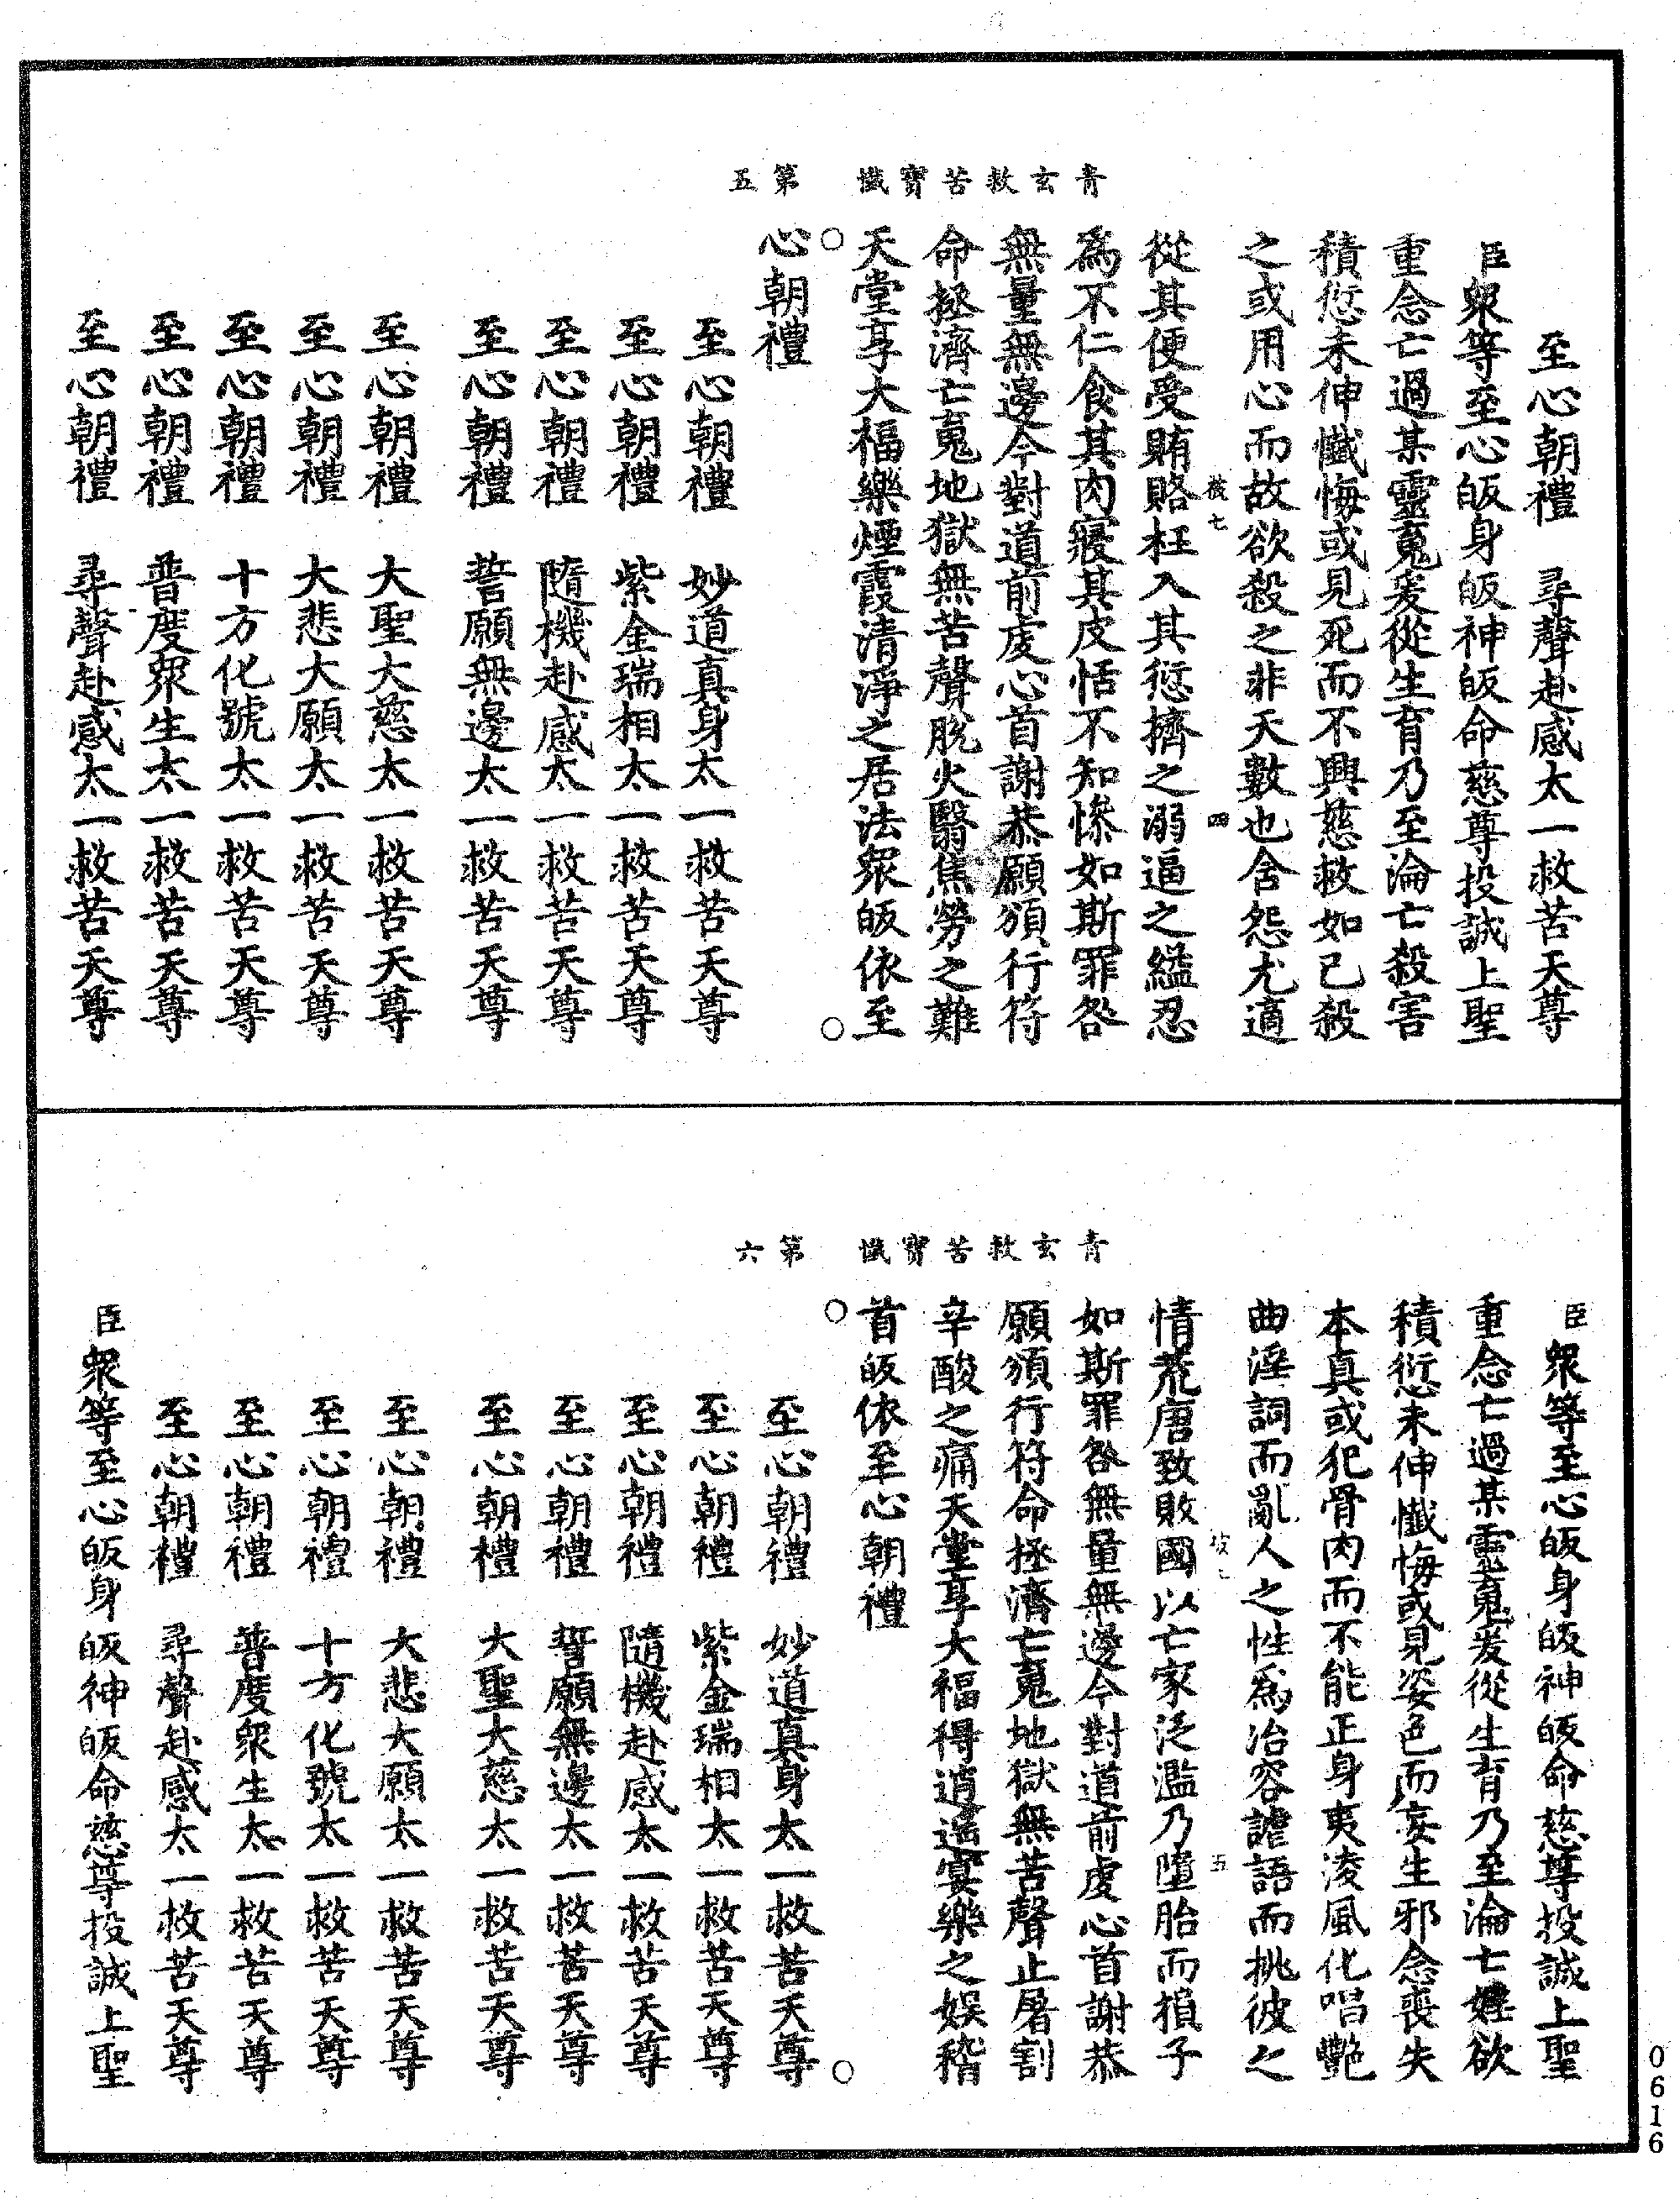 青玄救苦寶懺　第五
至心朝禮　尋聲赴感太一救苦天尊
臣眾等至心皈身皈神皈命慈尊投誠上聖
重念亡過某靈䰟爰從生育乃至淪亡殺害
積愆未伸懺悔或見死而不興慈救如已殺
之或用心而故欲殺之非天數也舍怨尤適
從其便受賄賂枉入其愆擠之溺逼之縊忍
為不仁食其肉寢其皮恬不知慘如斯罪咎
無量無邊今對道前虔心首謝恭願頒行符
命拯濟亡䰟地獄無苦聲脫火翳焦勞之難
天堂享大福樂煙霞清淨之居法眾皈依至
心朝禮
至心朝禮　妙道真身太一救苦天尊
至心朝禮　紫金瑞相太一救苦天尊
至心朝禮　隨機赴感太一救苦天尊
至心朝禮　誓願無邊太一救苦天尊
至心朝禮　大聖大慈太一救苦天尊
至心朝禮　大悲大願太一救苦天尊
至心朝禮　十方化號太一救苦天尊
至心朝禮　普度眾生太一救苦天尊
至心朝禮　尋聲赴感太一救苦天尊
四
青玄救苦寶懺　第六
臣眾等至心皈身皈神皈命慈尊投誠上聖
重念亡過某靈䰟爰從生育乃至淪亡婬欲
積愆未伸懺悔或見姿色而妄生邪念喪失
本真或犯骨肉而不能正身夷淩風化唱艷
曲淫詞而亂人之性為冶容謔語而挑彼之
情荒唐致敗國以亡家泛濫乃墮胎而損子
如斯罪咎無量無邊今對道前虔心首謝恭
願頒行符命拯濟亡䰟地獄無苦聲止屠割
辛酸之痛天堂享大福得逍遥宴樂之娛稽
首皈依至心朝禮
至心朝禮　妙道真身太一救苦天尊
至心朝禮　紫金瑞相太一救苦天尊
至心朝禮　隨機赴感太一救苦天尊
至心朝禮　誓願無邊太一救苦天尊
至心朝禮　大聖大慈太一救苦天尊
至心朝禮　大悲大願太一救苦天尊
至心朝禮　十方化號太一救苦天尊
至心朝禮　普度眾生太一救苦天尊
至心朝禮　尋聲赴感太一救苦天尊
臣眾等至心皈身皈神皈命慈尊投誠上聖
五
0616